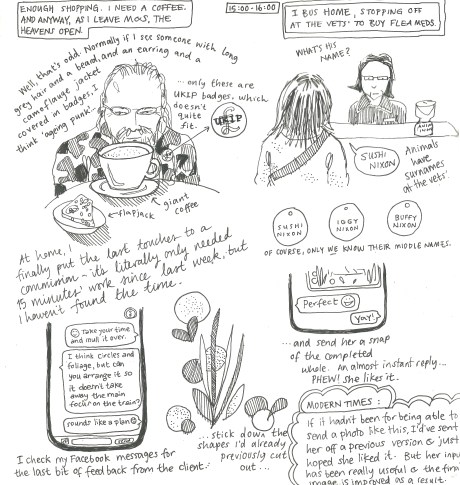 ENOUGH SHOPPING. I NEED A COFFEE.
AND ANYWAY, AS I LEAVE M&S, THE
HEAVENS OPEN.
15:00 - 16:00
I BUS HOME, STOPPING OFF
AT THE VETS' TO BUY FLEA MEDS.
Well, that's odd. Normally if I see someone with long
grey hair and a beard, and an earring and a
camouflage jacket
covered in badges, I
think 'ageing punk'.
...only these are
UKIP badges, which
doesn't
quite
fit.
UKIP
giant
coffee
flapjack
WHAT'S HIS
NAME?
SUSHI
NIXON
Animals
have
surnames
at the vets'.
SUSHI
NIXON
IGGY
NIXON
BUFFY
NIXON
OF COURSE, ONLY WE KNOW THEIR MIDDLE NAMES.
At home, I
finally put the last touches to a
commission - it's literally only needed
15 minutes' work since last week, but
I haven't found the time.
Take your time
and mull it over.
I think circles and
foliage, but can
you arrange it so
it doesn't take
away the main
focus on the train?
sounds like a plan
I check my Facebook messages for
the last bit of feedback from the client...
...stick down the
shapes I'd already
previously cut
out...
Perfect
Yay!
...and send her a snap
of the completed
whole. An almost instant reply...
PHEW! she likes it.
MODERN TIMES:
If it hadn't been for being able to
send a photo like this, I've sent
her off a previous version & just
hoped she liked it. But her input
has been really useful & the final
image is improved as a result.